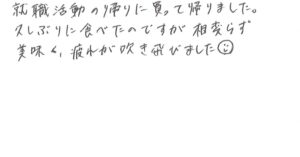 就職活動の帰りに買って帰りました。
久しぶりに食べたのですが相変らず
美味く、疲れが吹き飛びました☺